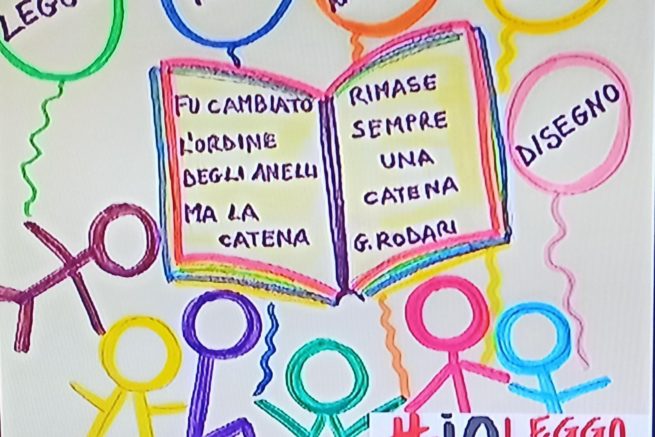 LEGG
FU CAMBIATO
L'ORDINE
DEGLI ANELLI
MA LA
CATENA
RIMASE
SEMPRE
UNA
CATENA
G. RODARI
DISEGNO
#ioLEGGO